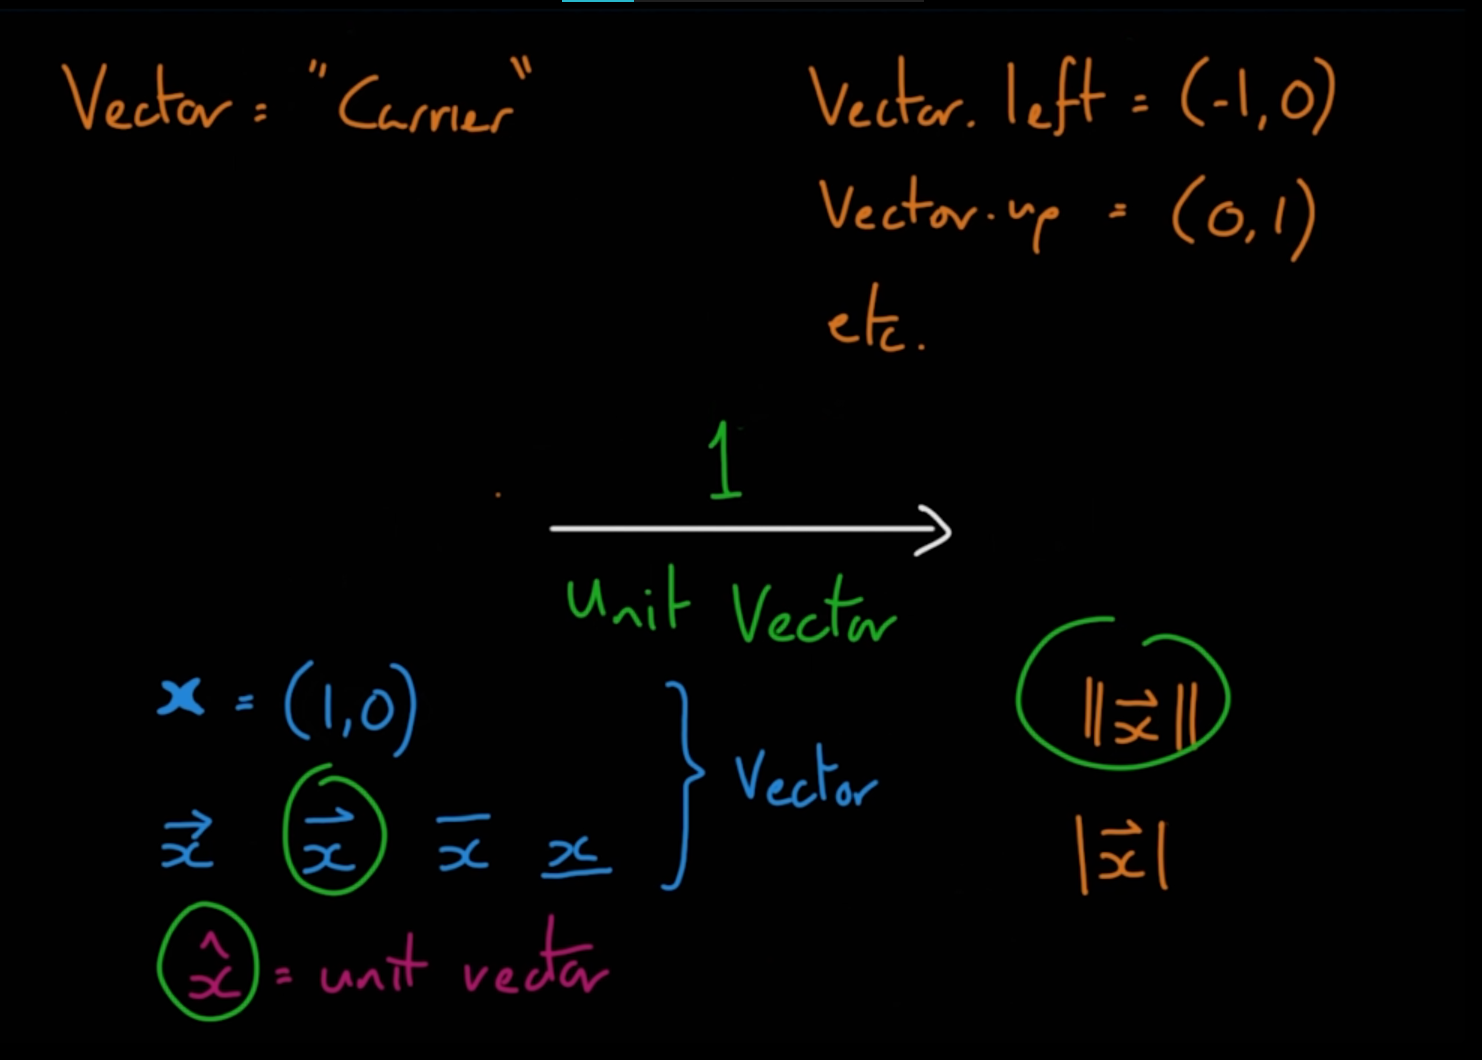 Vector = "Carrier"
Vector.left = (-1,0)
Vector.up = (0,1)
etc.
1
Unit Vector
x = (1,0)
x⃗ x⃗ x̅ x̲ } Vector
x̂ = unit vector
||x⃗||
|x⃗|